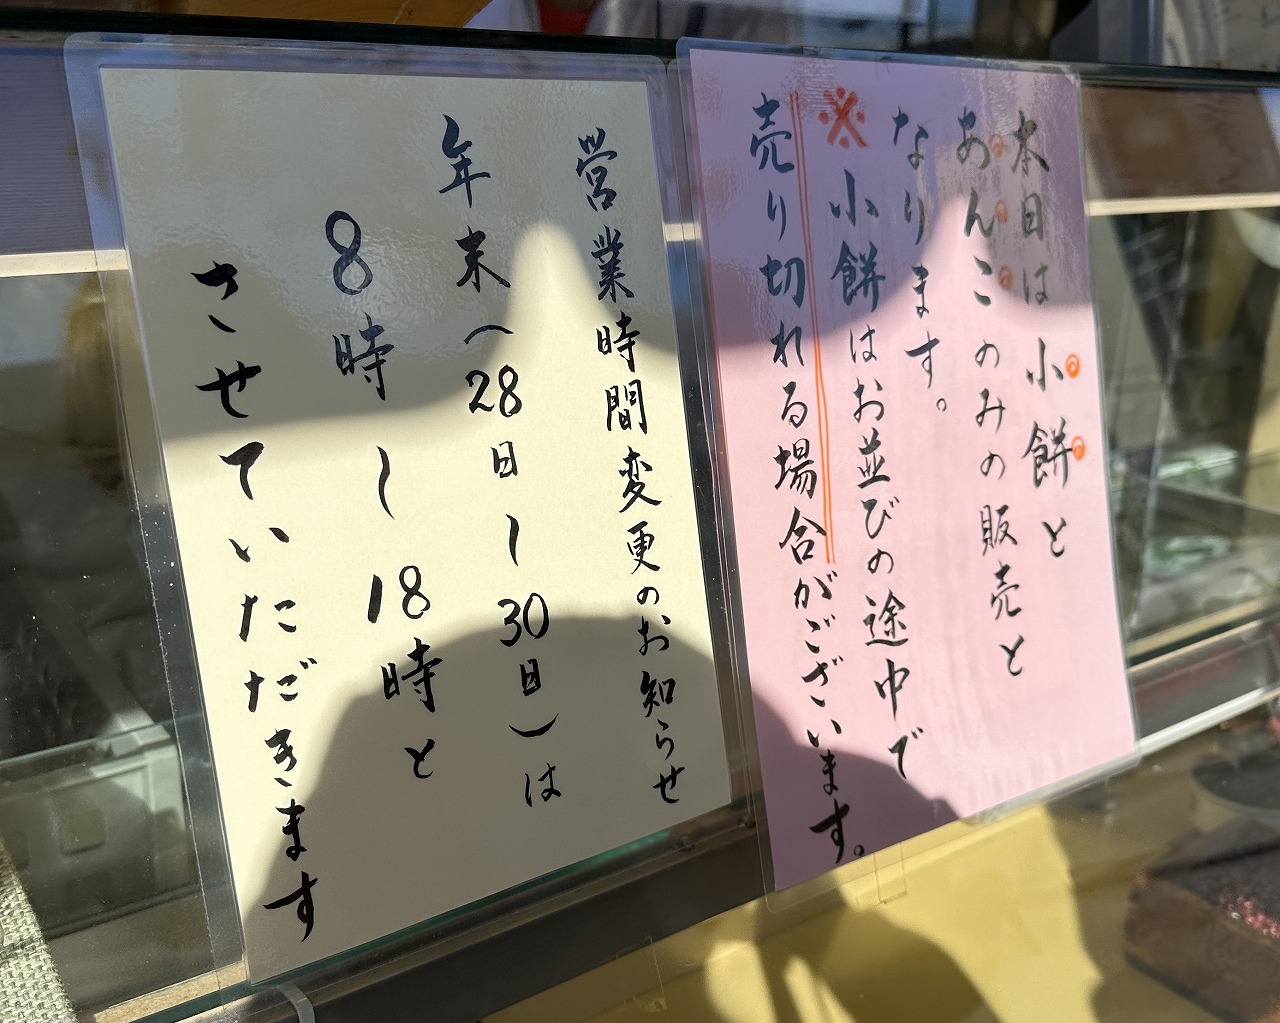 本日は小餅と
あんこのみの販売と
なります。
※小餅はお並びの途中で
売り切れる場合がございます。
営業時間変更のお知らせ
年末(28日〜30日)は
8時〜18時と
させていただきます